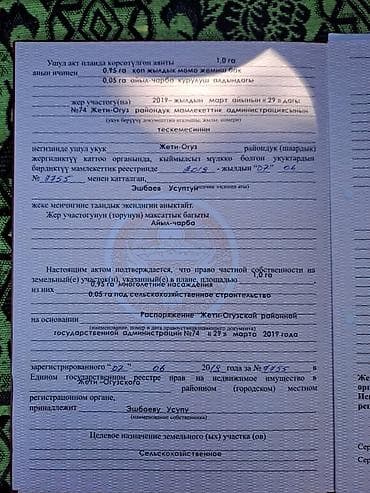 Ушул акт планда көрсөтүлгөн аянты 1,0 га
анын ичинен 0,95 га көп жылдык мөмө жемиш бак
0,05 га айыл-чарба курулуш алдындагы
жер участогу(на) 2019-жылдын март айынын «29»дагы
№74 Жети-Огуз райондук мамлекеттик администрациясынын
(укук берүүчү документтин аталышы, жылы, номери)
тескемесинин
негизинде ушул укук Жети-Огуз райондук (шаардык)
жергиликтүү каттоо органында, кыймылсыз мүлккө болгон укуктардын
бирдиктүү мамлекеттик реестринде 2019 - жылдын "07" 06
№ 9755 менен катталган,
Эшбаев Усуптун
жеке менчигине таандык экендигин аныктайт.
Жер участогунун (торунун) максаттык багыты
Айыл-чарба
Настоящим актом подтверждается, что право частной собственности на
земельный(е) участок(и), указанный(е) в плане, площадью 1,0 га,
из них 0,95 га многолетние насаждения
0,05 га под сельскохозяйственное строительство
на основании Распоряжение Жети-Огузской районной
(наименование, номер и дата правоустанавливающего документа)
государственной администрации №74 «29» марта 2019 года
зарегистрированного "07" 06 2019 года за № 9755 в
Едином государственном реестре прав на недвижимое имущество в
Жети-Огузского районном (городском) местном
регистрационном органе,
принадлежит Эшбаеву Усупу
(наименование собственника)
Целевое назначение земельного (ых) участка (ов)
Сельскохозяйственное